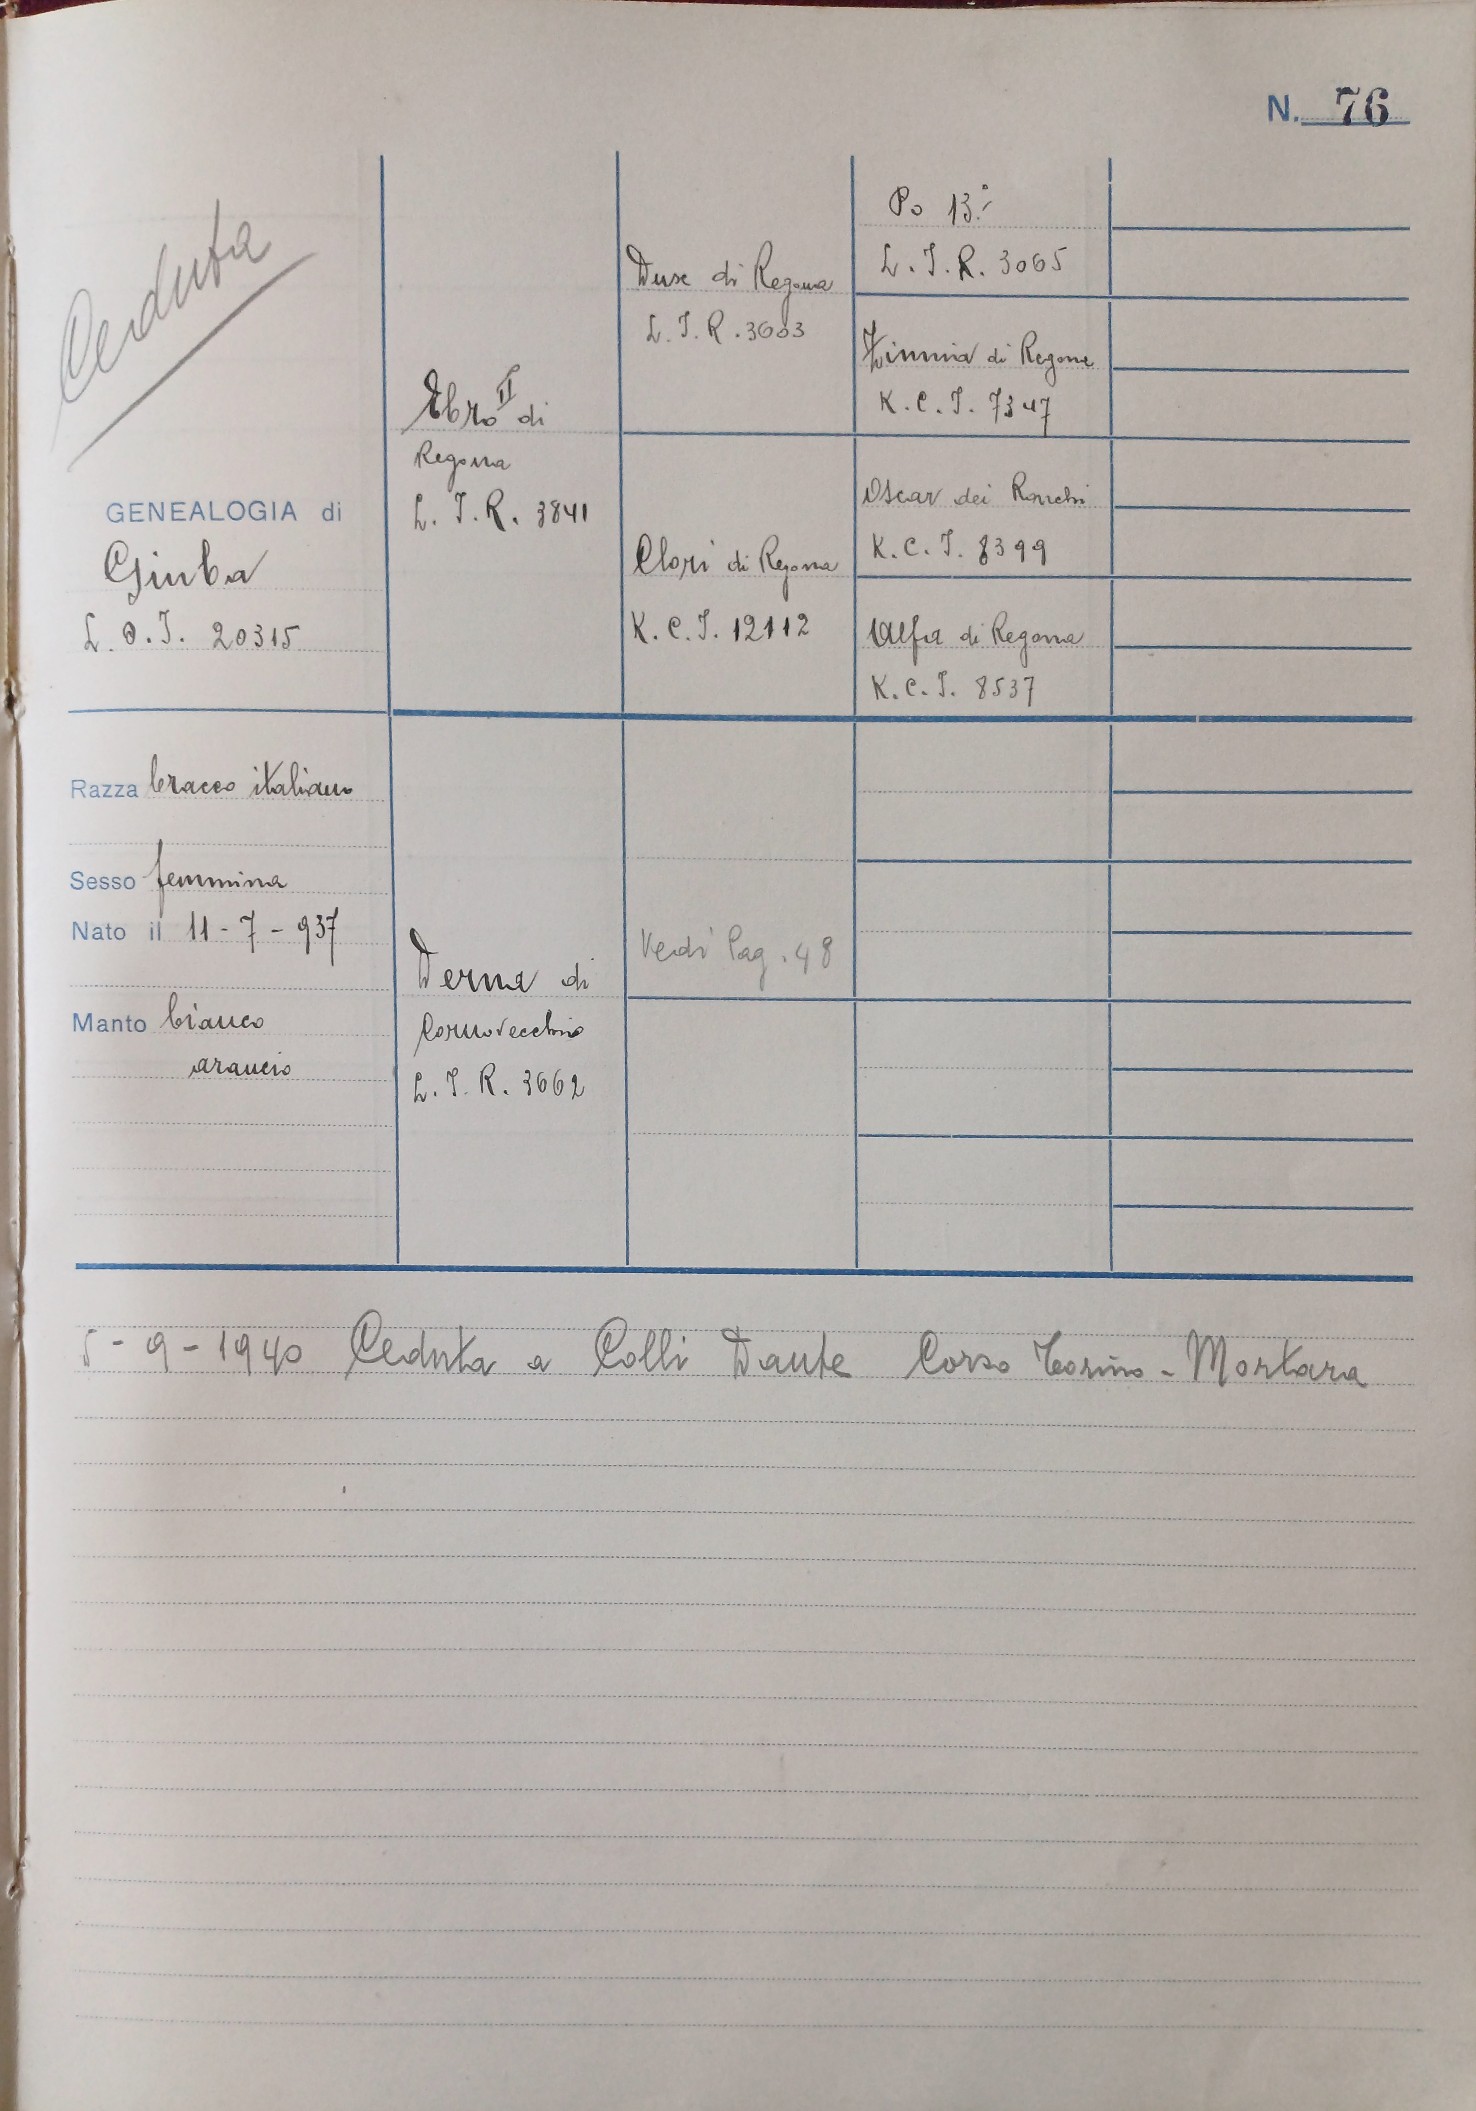 N. 76
Ceduta
GENEALOGIA di
Giuba
L.O.I. 20315
Razza bracco italiano
Sesso femmina
Nato il 11-7-937
Manto bianco
arancio
Ebro II di
Regona
L.I.R. 3841
Derna di
Cornovecchio
L.I.R. 3662
Duse di Regona
L.I.R. 3603
Clori di Regona
K.C.I. 12112
Vedi Pag. 48
Po 13:
L.I.R. 3065
Zinnia di Regona
K.C.I. 7347
Oscar dei Ronchi
K.C.I. 8399
Alfa di Regona
K.C.I. 8537
5-9-1940 Ceduta a Colli Dante Corso Torino - Mortara